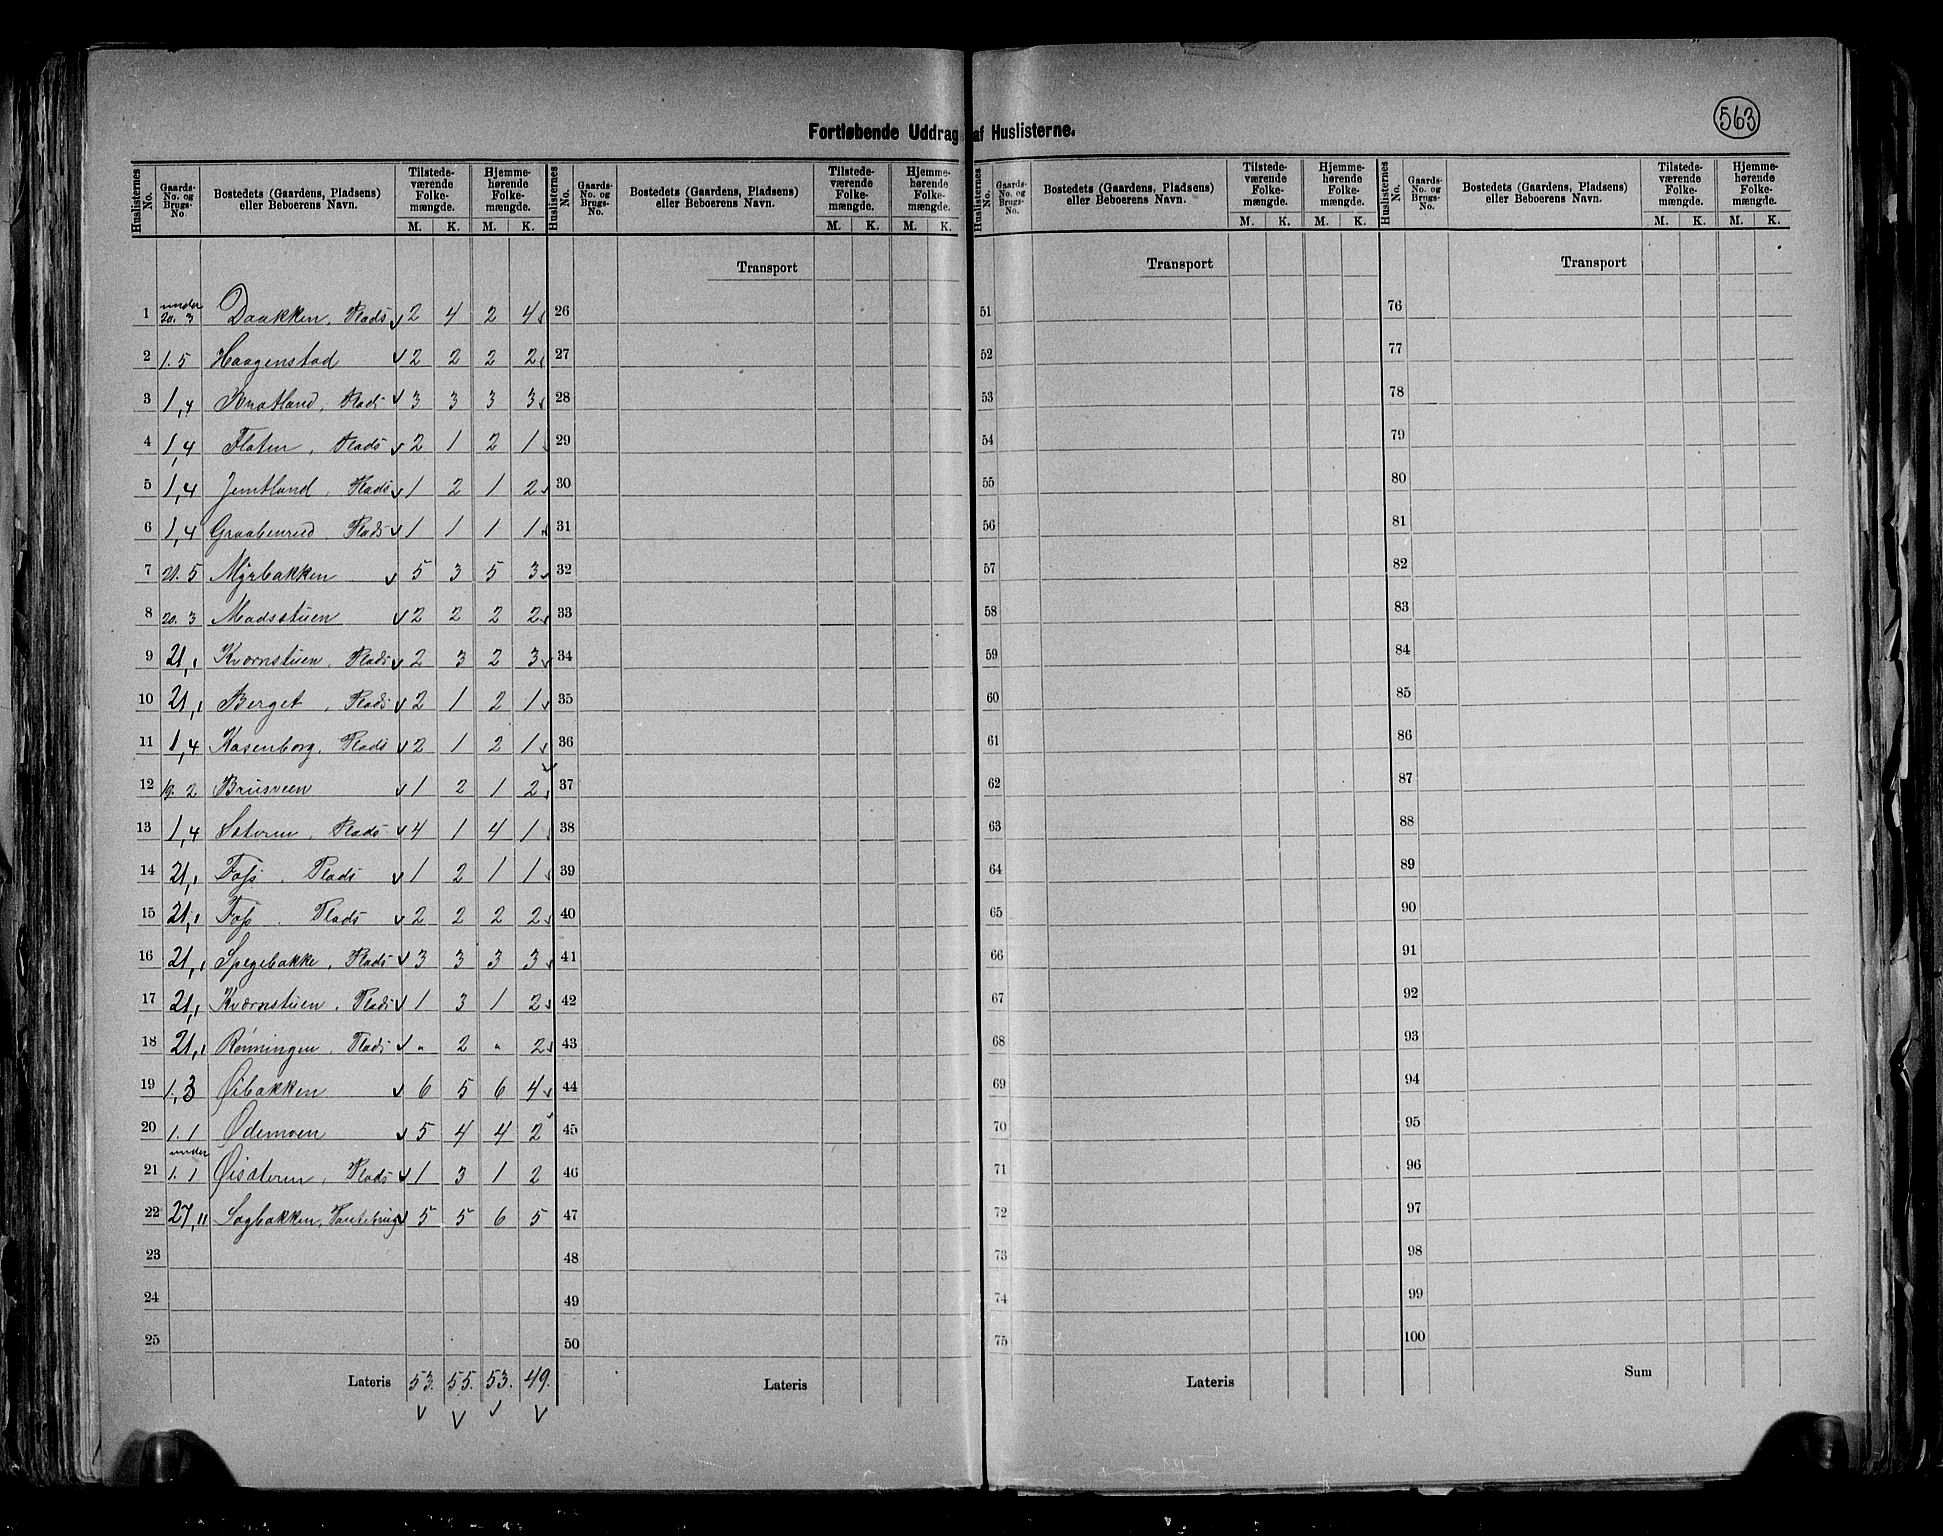 563
Fortløbende Uddrag af Huslisterne.
Huslisternes No. | Gaards-No. og Brugs-No. | Bostedets (Gaardens, Pladsens) eller Beboerens Navn. | Tilstede-værende Folke-mængde. M. K. | Hjemme-hørende Folke-mængde. M. K.
Huslisternes No. | Gaards-No. og Brugs-No. | Bostedets (Gaardens, Pladsens) eller Beboerens Navn. | Tilstede-værende Folke-mængde. M. K. | Hjemme-hørende Folke-mængde. M. K.
Huslisternes No. | Gaards-No. og Brugs-No. | Bostedets (Gaardens, Pladsens) eller Beboerens Navn. | Tilstede-værende Folke-mængde. M. K. | Hjemme-hørende Folke-mængde. M. K.
Huslisternes No. | Gaards-No. og Brugs-No. | Bostedets (Gaardens, Pladsens) eller Beboerens Navn. | Tilstede-værende Folke-mængde. M. K. | Hjemme-hørende Folke-mængde. M. K.
Transport Transport Transport
1 under 20. 3 Daakken, Plads 2 4 2 4 26 51 76
2 1. 5 Haagenstad 2 2 2 2 27 52 77
3 1,4 Kratland, Plads 3 3 3 3 28 53 78
4 1,4 Flaten, Plads 2 1 2 1 29 54 79
5 1,4 Jemtland, Plads 1 2 1 2 30 55 80
6 1,4 Graabenrud, Plads 1 1 1 1 31 56 81
7 21. 5 Myrbakken 5 3 5 3 32 57 82
8 20. 3 Madsstuen 2 2 2 2 33 58 83
9 21,1 Kværnstuen, Plads 2 3 2 3 34 59 84
10 21,1 Berget, Plads 2 1 2 1 35 60 85
11 1,4 Kasenborg, Plads 2 1 2 1 36 61 86
12 19. 2 Brusveen 1 2 1 2 37 62 87
13 1,4 Sæteren, Plads 4 1 4 1 38 63 88
14 21,1 Foss, Plads 1 2 1 1 39 64 89
15 21,1 Foss. Plads 2 2 2 2 40 65 90
16 21,1 Spegebakke, Plads 3 3 3 3 41 66 91
17 21,1 Kværnstuen, Plads 1 3 1 2 42 67 92
18 21,1 Rønningen, Plads " 2 " 2 43 68 93
19 1,3 Øibakken 6 5 6 4 44 69 94
20 1. 1 Ødemoen 5 4 4 2 45 70 95
21 under 1. 1 Øisæteren, Plads 1 3 1 2 46 71 96
22 27,11 Sagbakken, 5 5 6 5 47 72 97
23 48 73 98
24 49 74 99
25 50 75 100
Lateris 53. 55. 53. 49. Lateris Lateris Sum